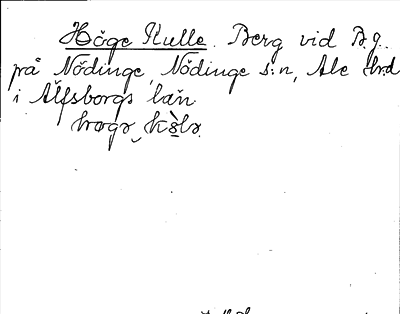 Höge Kulle. Berg vid B.g.
på Nödinge, Nödinge s:n, Ale hrd
i Älfsborgs län